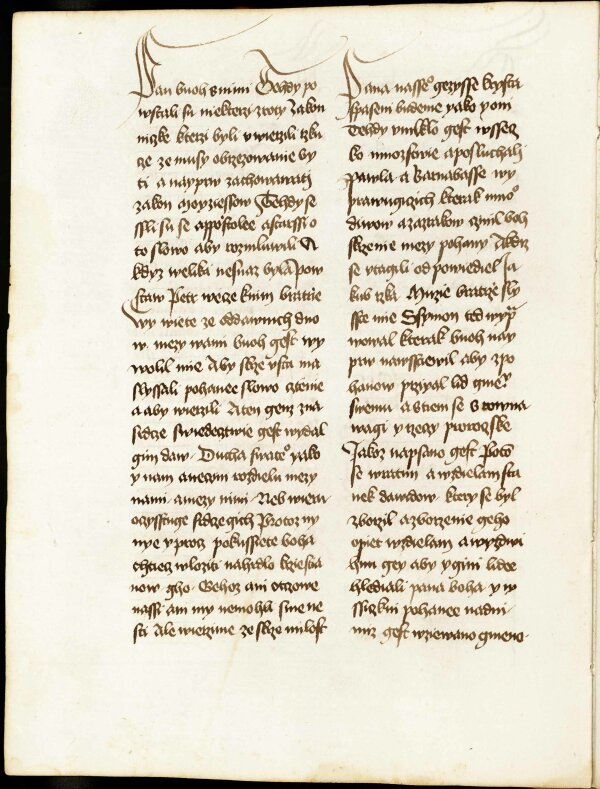 Pan buoh s nimi Tehdy po
wstali su niekterzi z toty Zakon
niczke kterzi byli vwierzili rzku
cze ze musy obrzezowanie by
ti a nayprw zachowawati
zakon moyziessow Tehdy se
ssli su se appostolee a starssi o
to slowo aby rozmluwili A
kdyz welika nesnaz byla pow
staw Petr wecze k nim bratrie
Wy wiete ze od dawnich dno
w mezy wami buoh gest wy
wolil mie Aby skrze vsta ma
slyssali pohanee slowo cztenie
a aby wierzili A ten genz zna
srdcze swiedecztwie gest wydal
gim daw Ducha swateo yako
y nam a niecym rozdielu mezy
nami a mezy nimi Neb wierau
oczysstuge srdcze gich Protoz ny
nye y procz pokussiete boha
chtiecz wloziti na hrdlo kziesta
now gho Gehoz ani otczowe
nassi ani my nemohli sme ne
sti Ale wierzime ze skrze milost
Pana nasseo gezysse krysta
spaseni budeme yako y oni
Tehdy vmlklo gest wssecz
ko mnozstwie a posluchali
Pawla a Barnabasse wy
prawugiczich kterak mnoo
diwow a zazrakow czinil boh
skrze nie mezy pohany A kdiz
se vtagili odpowiediel Ja
kub rzka Muzie bratrze sly
sste mie Ssymon ted wyp
wowal kterak buoh nay
prw nawsstiewil aby z po
hanow przyyal lid gmeo
swemu a s tiem se srowna
wagi y rzeczy prorozske
Jakoz napsano gest Potom
se wratim a wzdielam sta
nek dawidow ktery se byl
zborzil a zborzenie geho
opiet wzdielam a wyzdwi
hnu gey aby y gini lidee
hledali pana boha y w
ssiczkni pohanee nad ni
miz gest wziewano gmeno